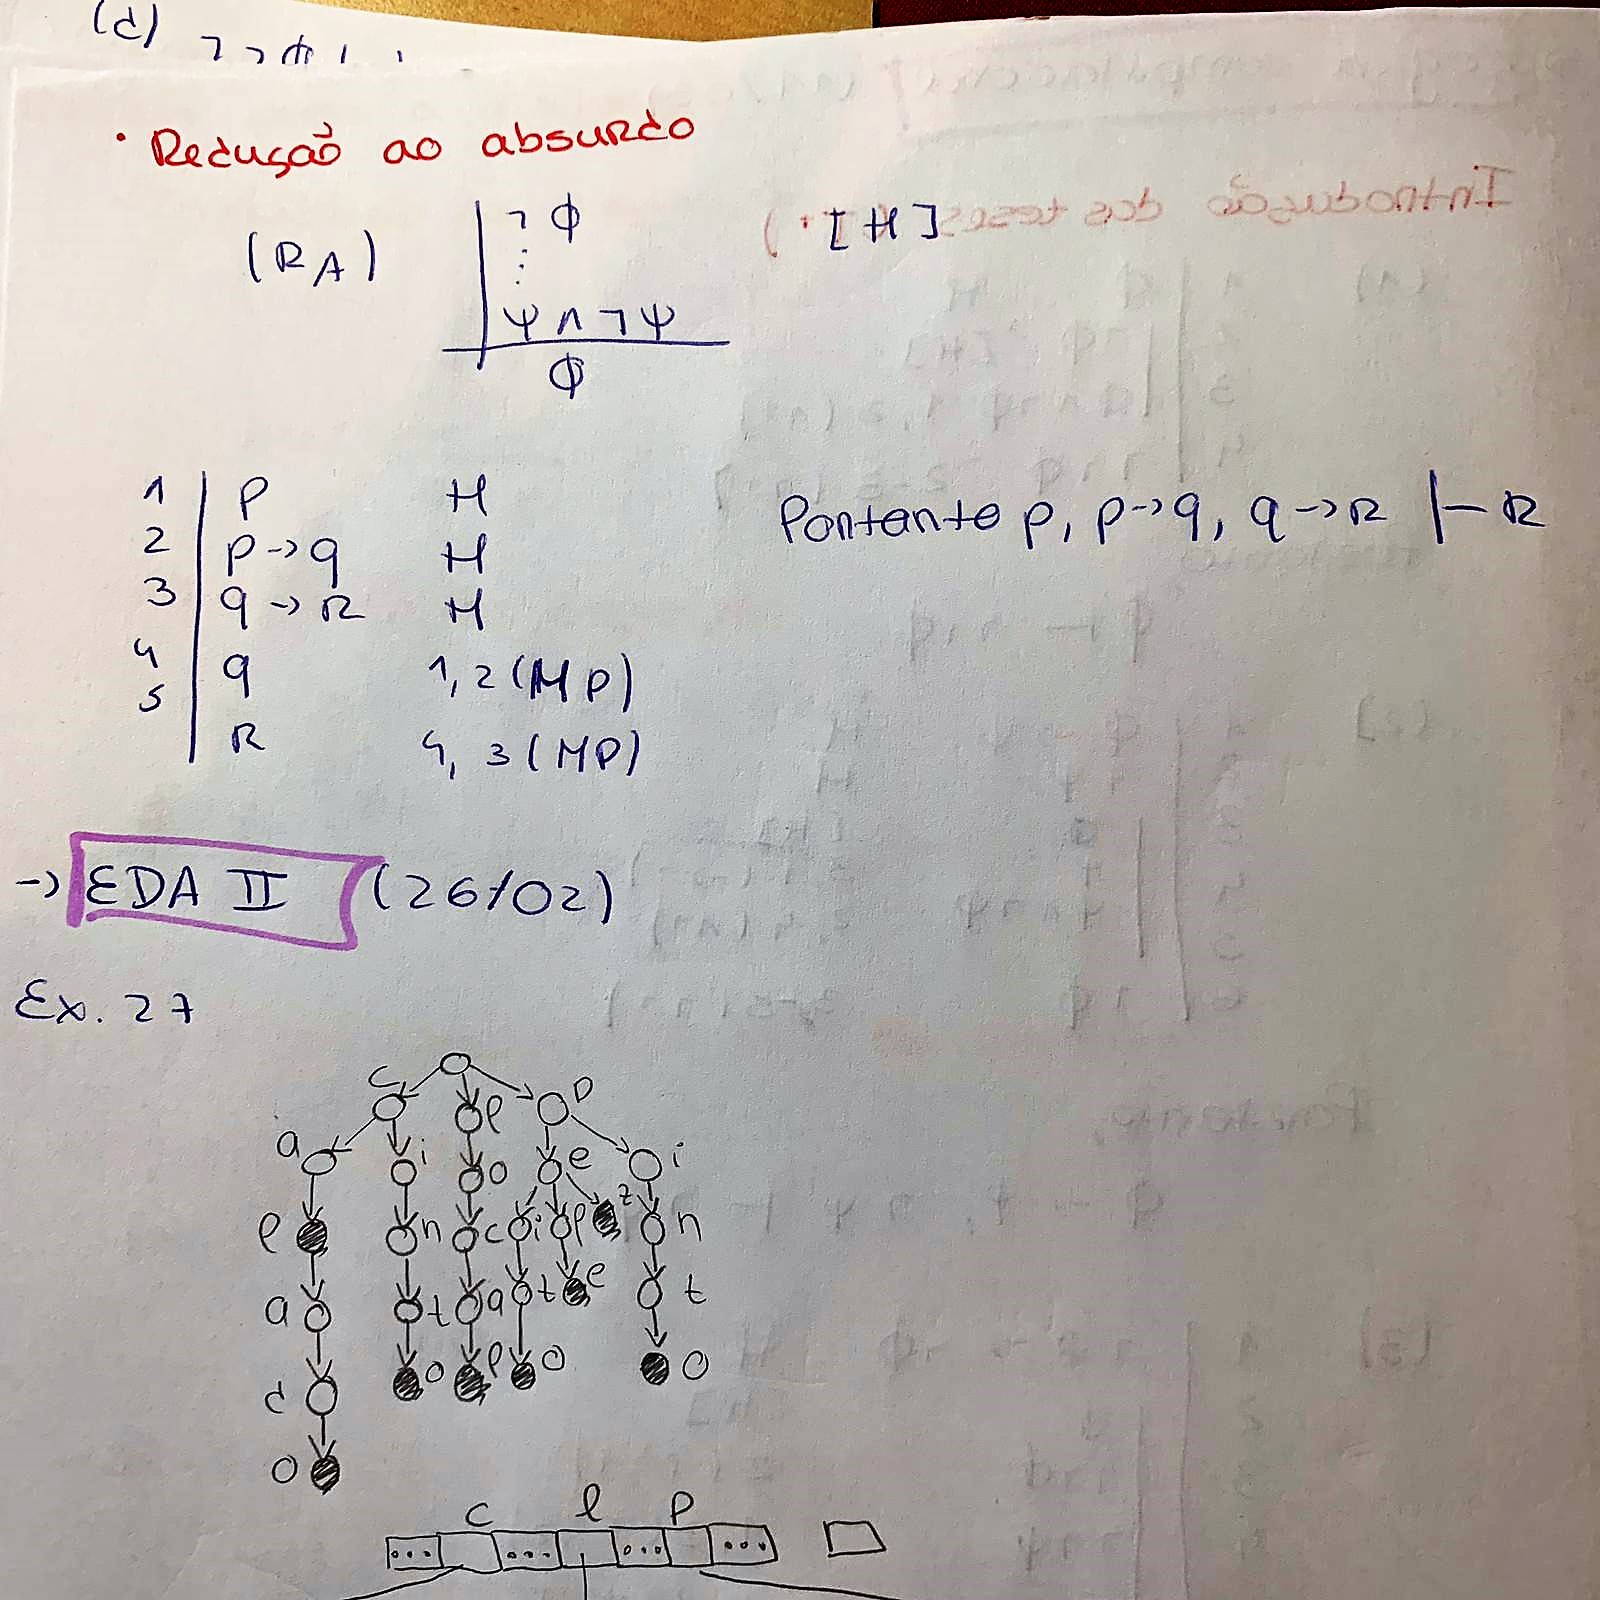 (d) ¬¬ϕ
• Redução ao absurdo
(RA) ¬ϕ [H]
⋮
ψ ∧ ¬ψ
ϕ
1 p H
2 p → q H
3 q → R H
4 q 1, 2 (MP)
5 R 4, 3 (MP)
Portanto p, p → q, q → R ⊢ R
→ EDA II (26/02)
Ex. 27
c l p
a i o e i
l n c i l z n
a t a t e t
d o l o o
o
c l p
... ... ... ...